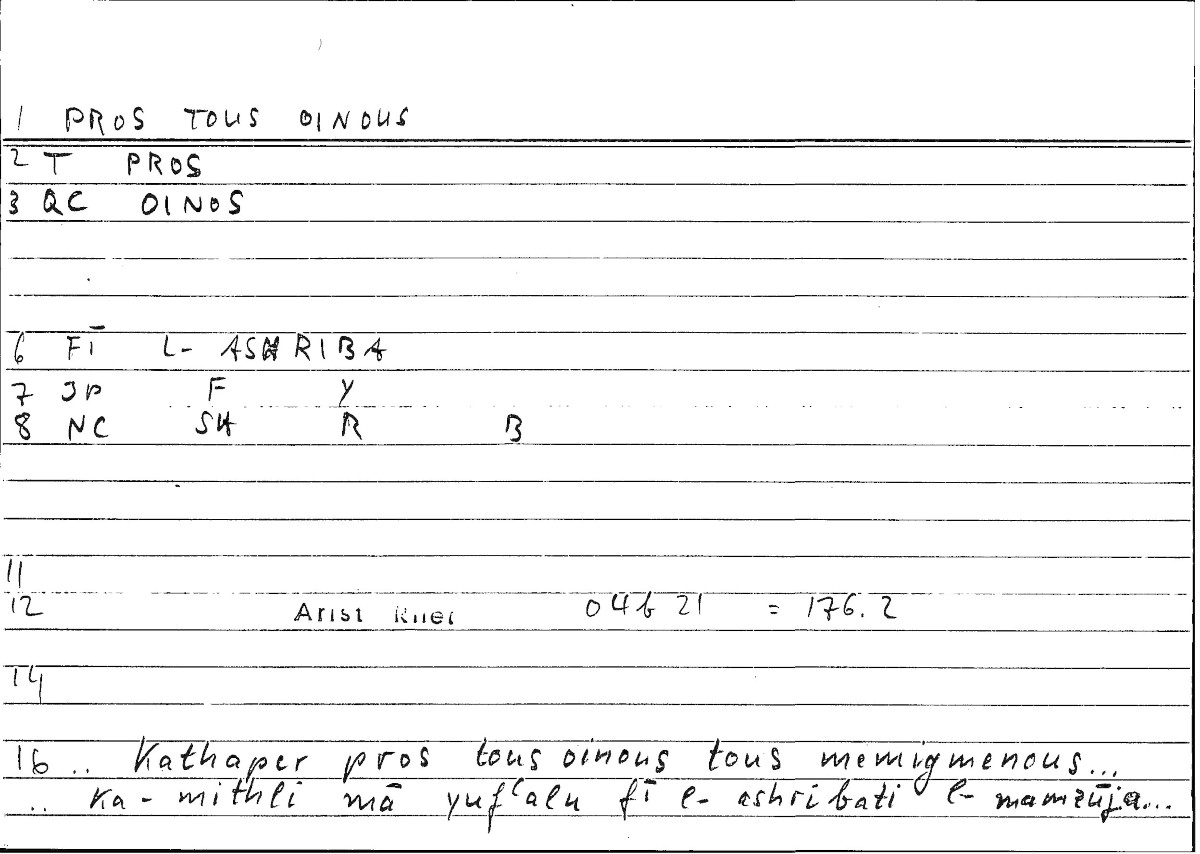 1 PROS TOUS OINOUS
2 T PROS
3 QC OINOS
6 FĪ L- ASHRIBA
7 JP F Y
8 NC SH R B
11
12 Arist Rhet 04b 21 = 176.2
14
16 .. Kathaper pros tous oinous tous memigmenous...
.. ka-mithli mā yufʿalu fī l- ashribati l- mamzūja...